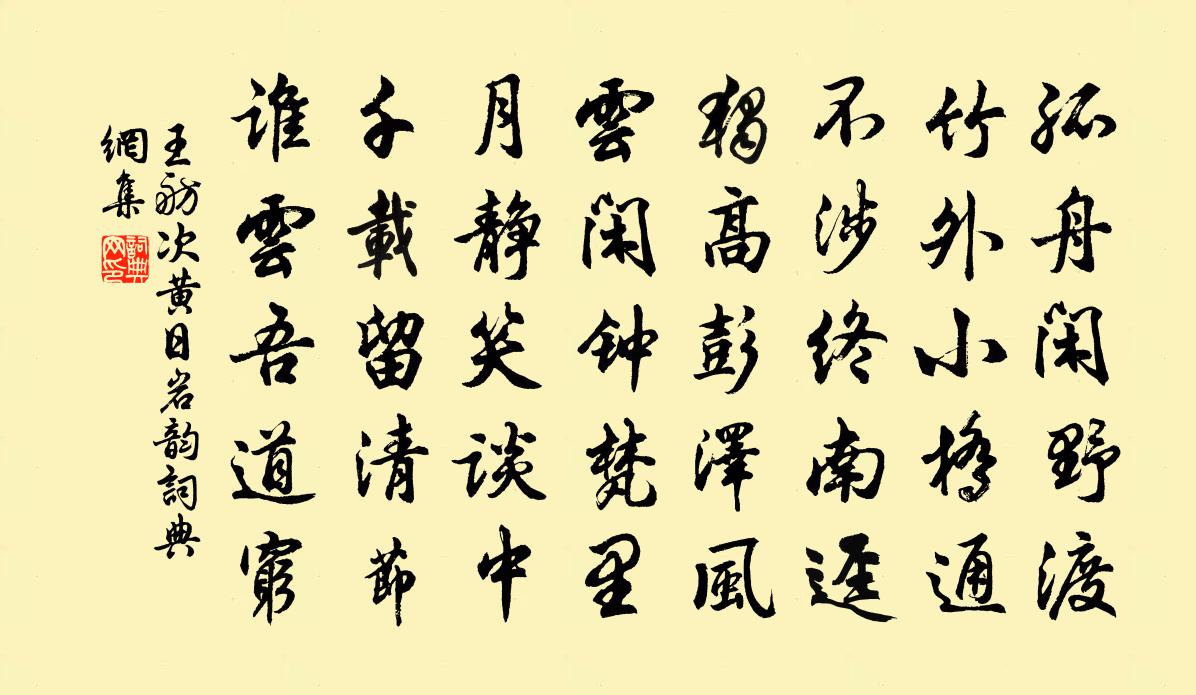 孤舟闲野渡
竹外小橋通
不涉终南迳
獨高彭澤風
雲闲钟梵里
月静笑談中
千載留清節
誰雲吾道窮
王舫次黄日岩韵詞典
網集
詞典
网印